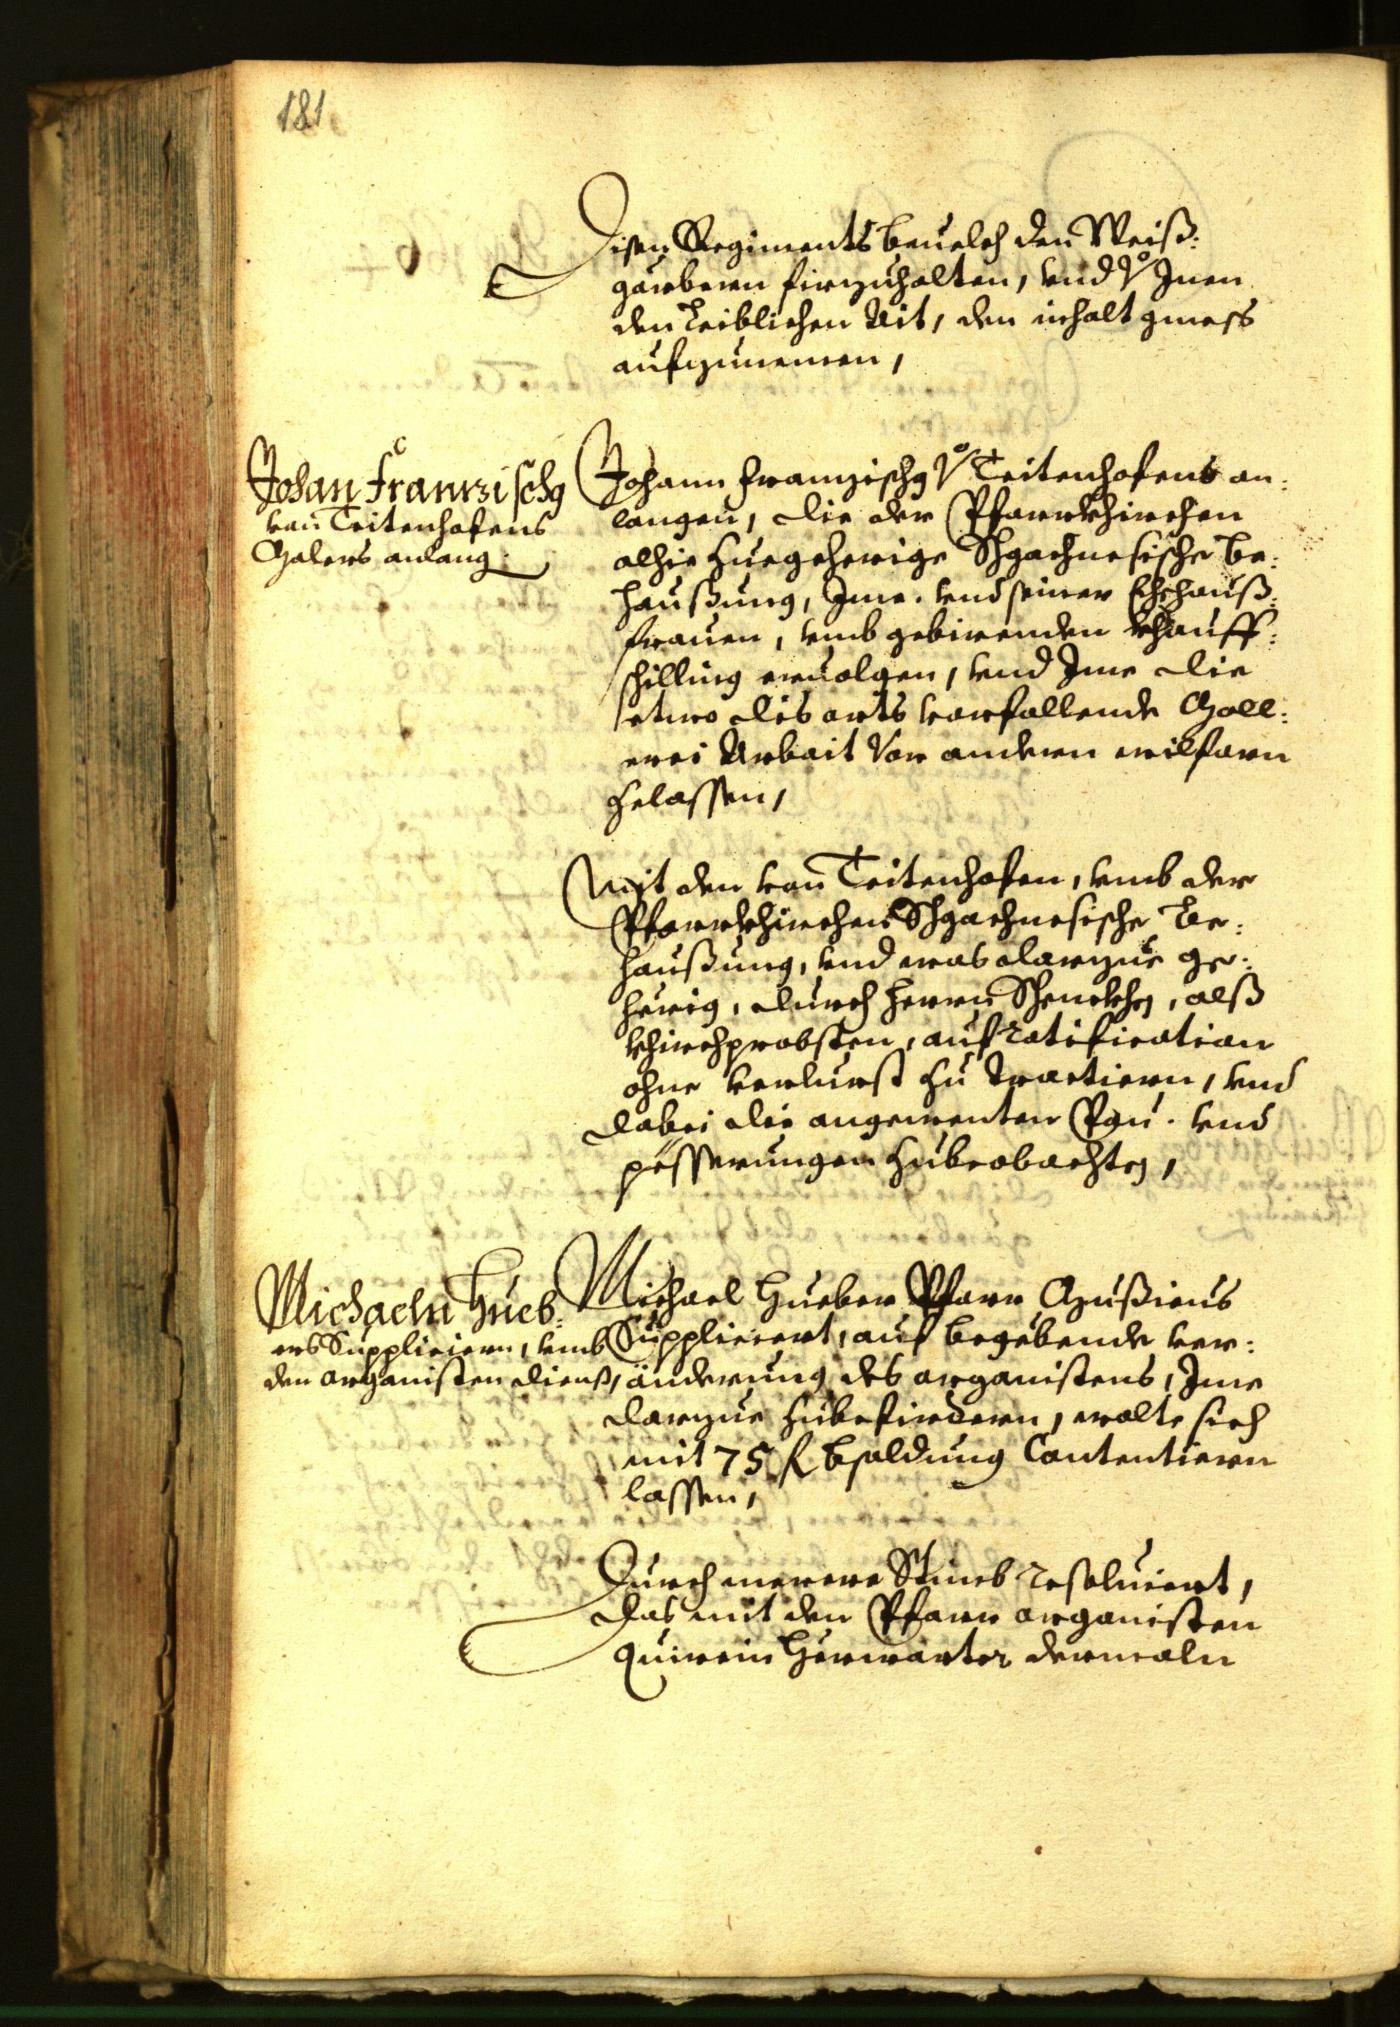 181
Disen Regiments beuelch den Weiß:
gärbern firzuhalten, vnd v° Inen
den Leiblichen Ait, den inhalt gmess
aufzunemen,
Johan Francziscg
von Teitenhofens
Malers anlang
Johann Franzischg v° Teitenhofens an:
langen, die der Pfarrkhirchen
alhie Zuegeherige Schgachnesische Be:
haußung, Ime. vnd seiner Ehehauß:
frauen, vmb gebirenden khauff:
schilling ervolgen, vnd Ime die
etwo dis orts vorfallende Moll:
erei Arbait Vor andern wilfarn
Zelassen,
Mit den von Teitenhofen, vmb der
Pfarrkhirchen Schgachnesische Be:
haußung, vnd was darzue ge:
herig, durch Herrn Schenckhen, alß
khirchprobsten, auf ratification
ohne verlurst Zu tractiern, vnd
dabei die angewenten Pau. vnd
pesserungen Zubeobachten,
Michaeln Hueb:
ers Suppliciern, vmb
den organisten dienst,
Michael Hueber Pfarr Musicus
Suppliciert, auf begebende ver:
änderung des organistens, Ime
darzue Zubefirdern, wolte sich
mit 75 f bsoldung Contentiern
lassen,
Durch merere Stimb resoluiert,
das mit den Pfarr organisten
Quirein Herwarter dermaln